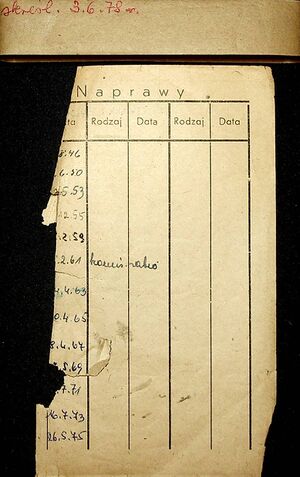 skreśl. 3.6.78 r.
Naprawy
ata Rodzaj Data Rodzaj Data
8.46
.6.50
5.53
.2.55
.2.59
.2.61
4.4.63
0.4.65
8.4.67
.5.69
.7.71
6.7.73
26.5.75